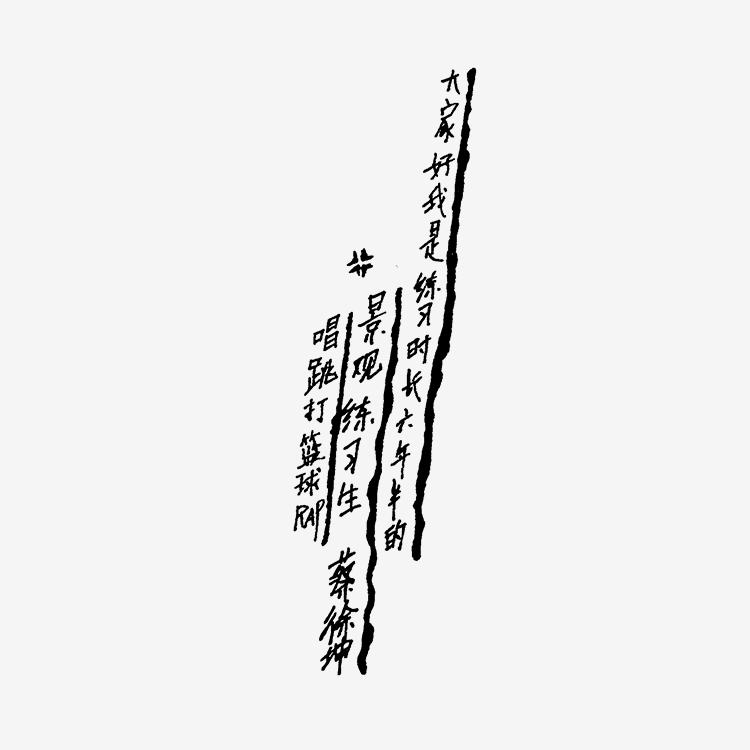 大家好我是练习时长六年半的
景观练习生 蔡徐坤
唱跳打篮球RAP